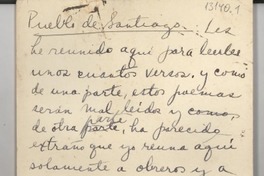 13140,1
Pueblo de Santiago: Les
he reunido aquí para leerles
unos cuantos versos, y como
de una parte, estos poemas
serán mal leídos y como,
de otra parte, ha parecido
extraño que yo reuna aquí
solamente a obreros y a